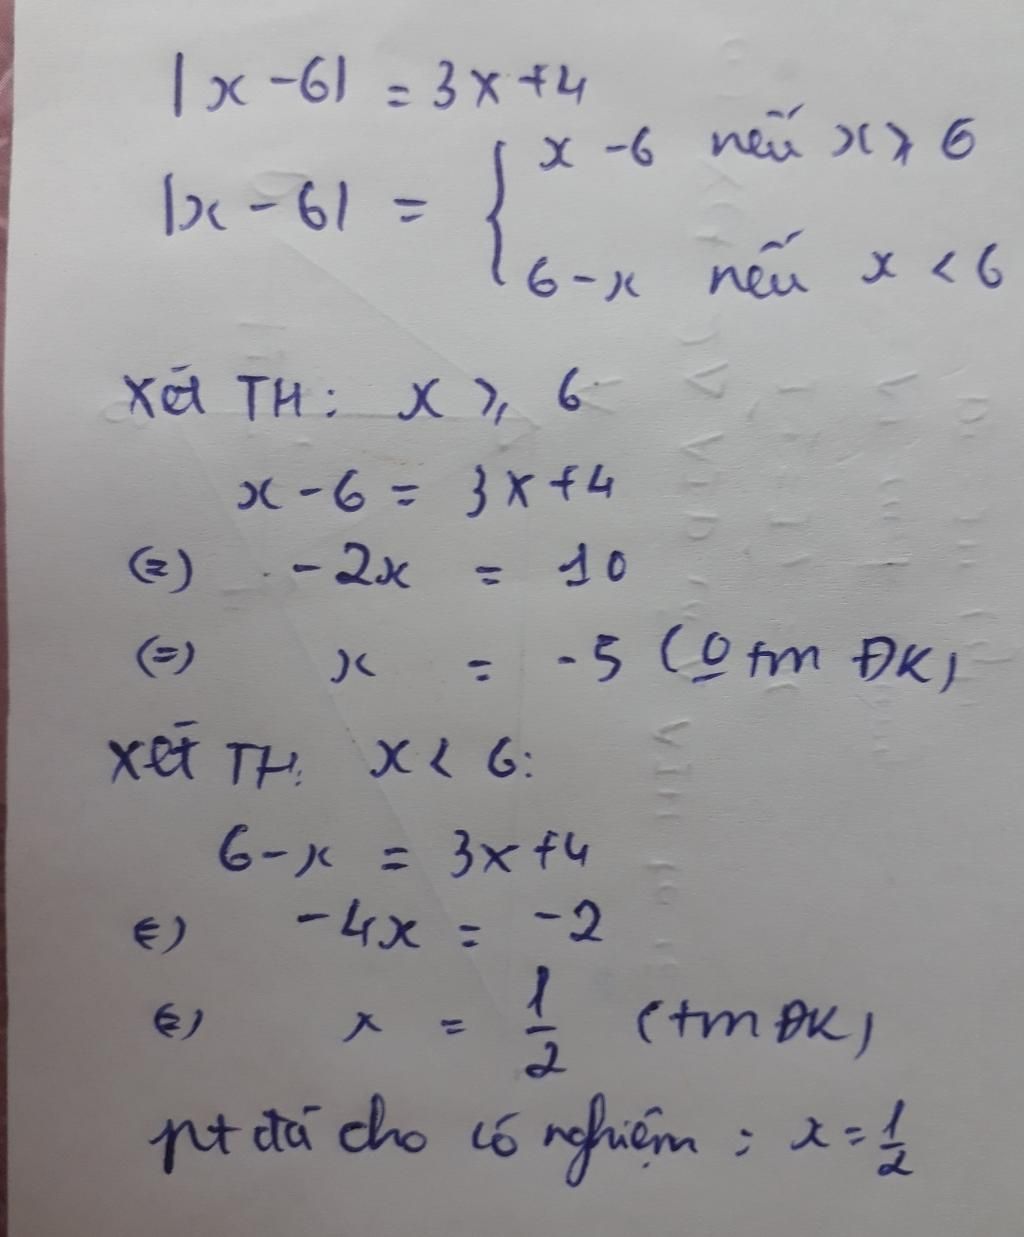 |x - 6| = 3x + 4
|x - 6| = { x - 6 nếu x ⩾ 6
6 - x nếu x < 6
Xét TH: x ⩾ 6
x - 6 = 3x + 4
(=) - 2x = 10
(=) x = - 5 (O tm ĐK)
Xét TH: x < 6:
6 - x = 3x + 4
(=) - 4x = - 2
(=) x = 1/2 (tm ĐK)
pt đã cho có nghiệm : x = 1/2